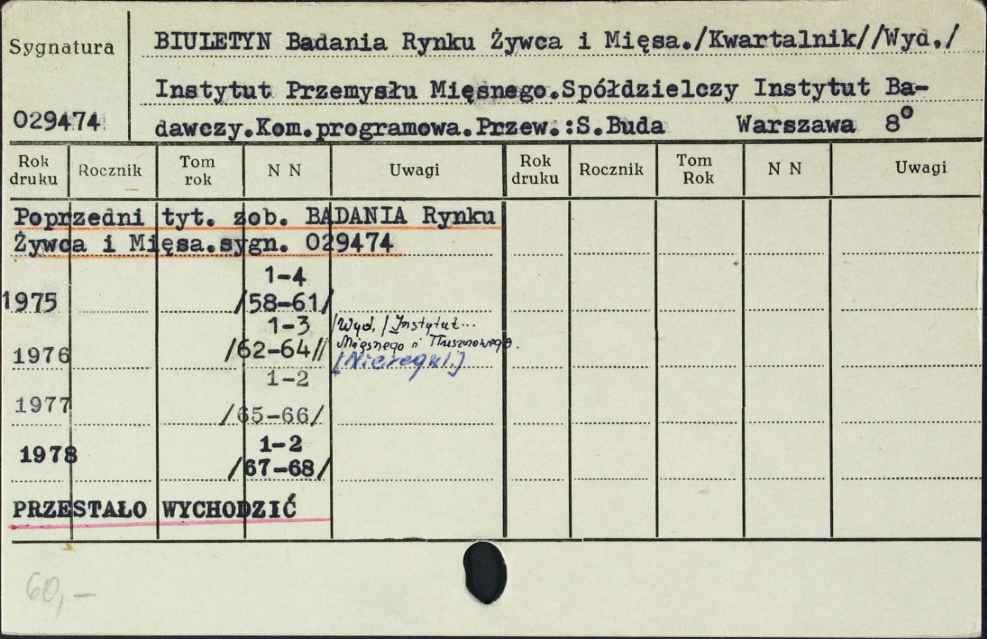 Sygnatura
029474
BIULETYN Badania Rynku Żywca i Mięsa./Kwartalnik//Wyd./
Instytut Przemysłu Mięsnego.Spółdzielczy Instytut Ba-
dawczy.Kom.programowa.Przew.:S.Buda Warszawa 8°
Rok druku Rocznik Tom rok N N Uwagi Rok druku Rocznik Tom Rok N N Uwagi
Poprzedni tyt. zob. BADANIA Rynku
Żywca i Mięsa.sygn. 029474
1-4
1975 /58-61/
1-3 /Wyd./Instytut...
1976 /62-64// Mięsnego i Tłuszczowego.
[Nieregul.]
1-2
1977 /65-66/
1-2
1978 /67-68/
PRZESTAŁO WYCHODZIĆ
60,-